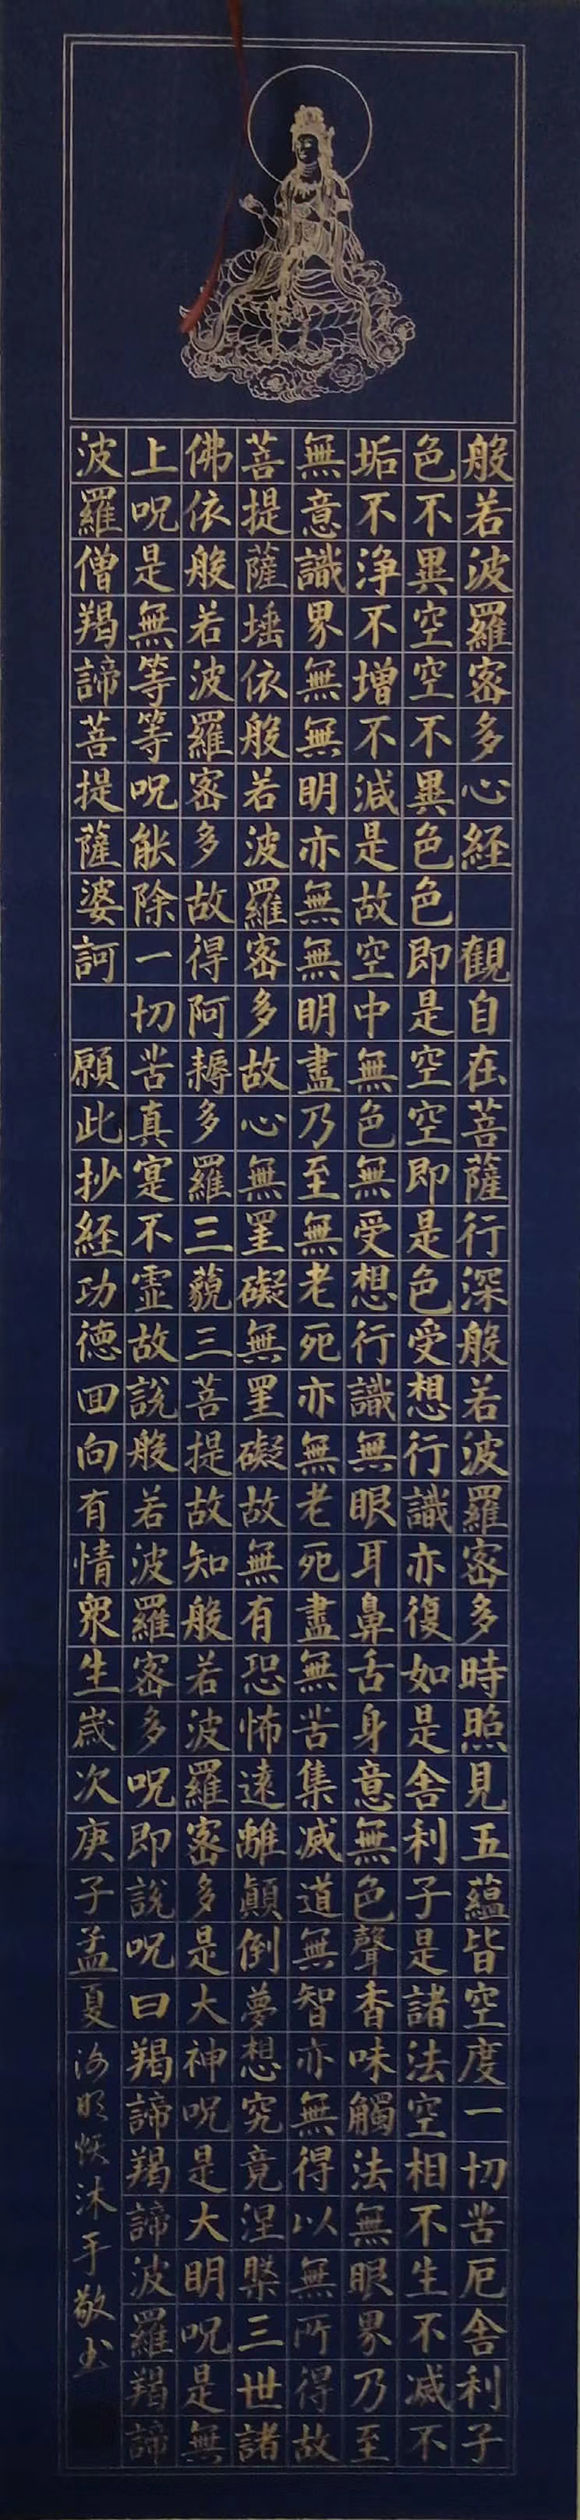 般若波羅密多心経 観自在菩薩行深般若波羅密多時照見五蘊皆空度一切苦厄舎利子
色不異空空不異色色即是空空即是色受想行識亦復如是舎利子是諸法空相不生不滅不
垢不浄不増不減是故空中無色無受想行識無眼耳鼻舌身意無色聲香味觸法無眼界乃至
無意識界無無明亦無無明盡乃至無老死亦無老死盡無苦集滅道無智亦無得以無所得故
菩提薩埵依般若波羅密多故心無罣礙無罣礙故無有恐怖遠離顛倒夢想究竟涅槃三世諸
佛依般若波羅密多故得阿耨多羅三藐三菩提故知般若波羅密多是大神呪是大明呪是無
上呪是無等等呪能除一切苦真寔不虛故說般若波羅密多呪即說呪曰羯諦羯諦波羅羯諦
波羅僧羯諦菩提薩婆訶 願此抄経功德回向有情眾生歲次庚子孟夏 沐手敬书